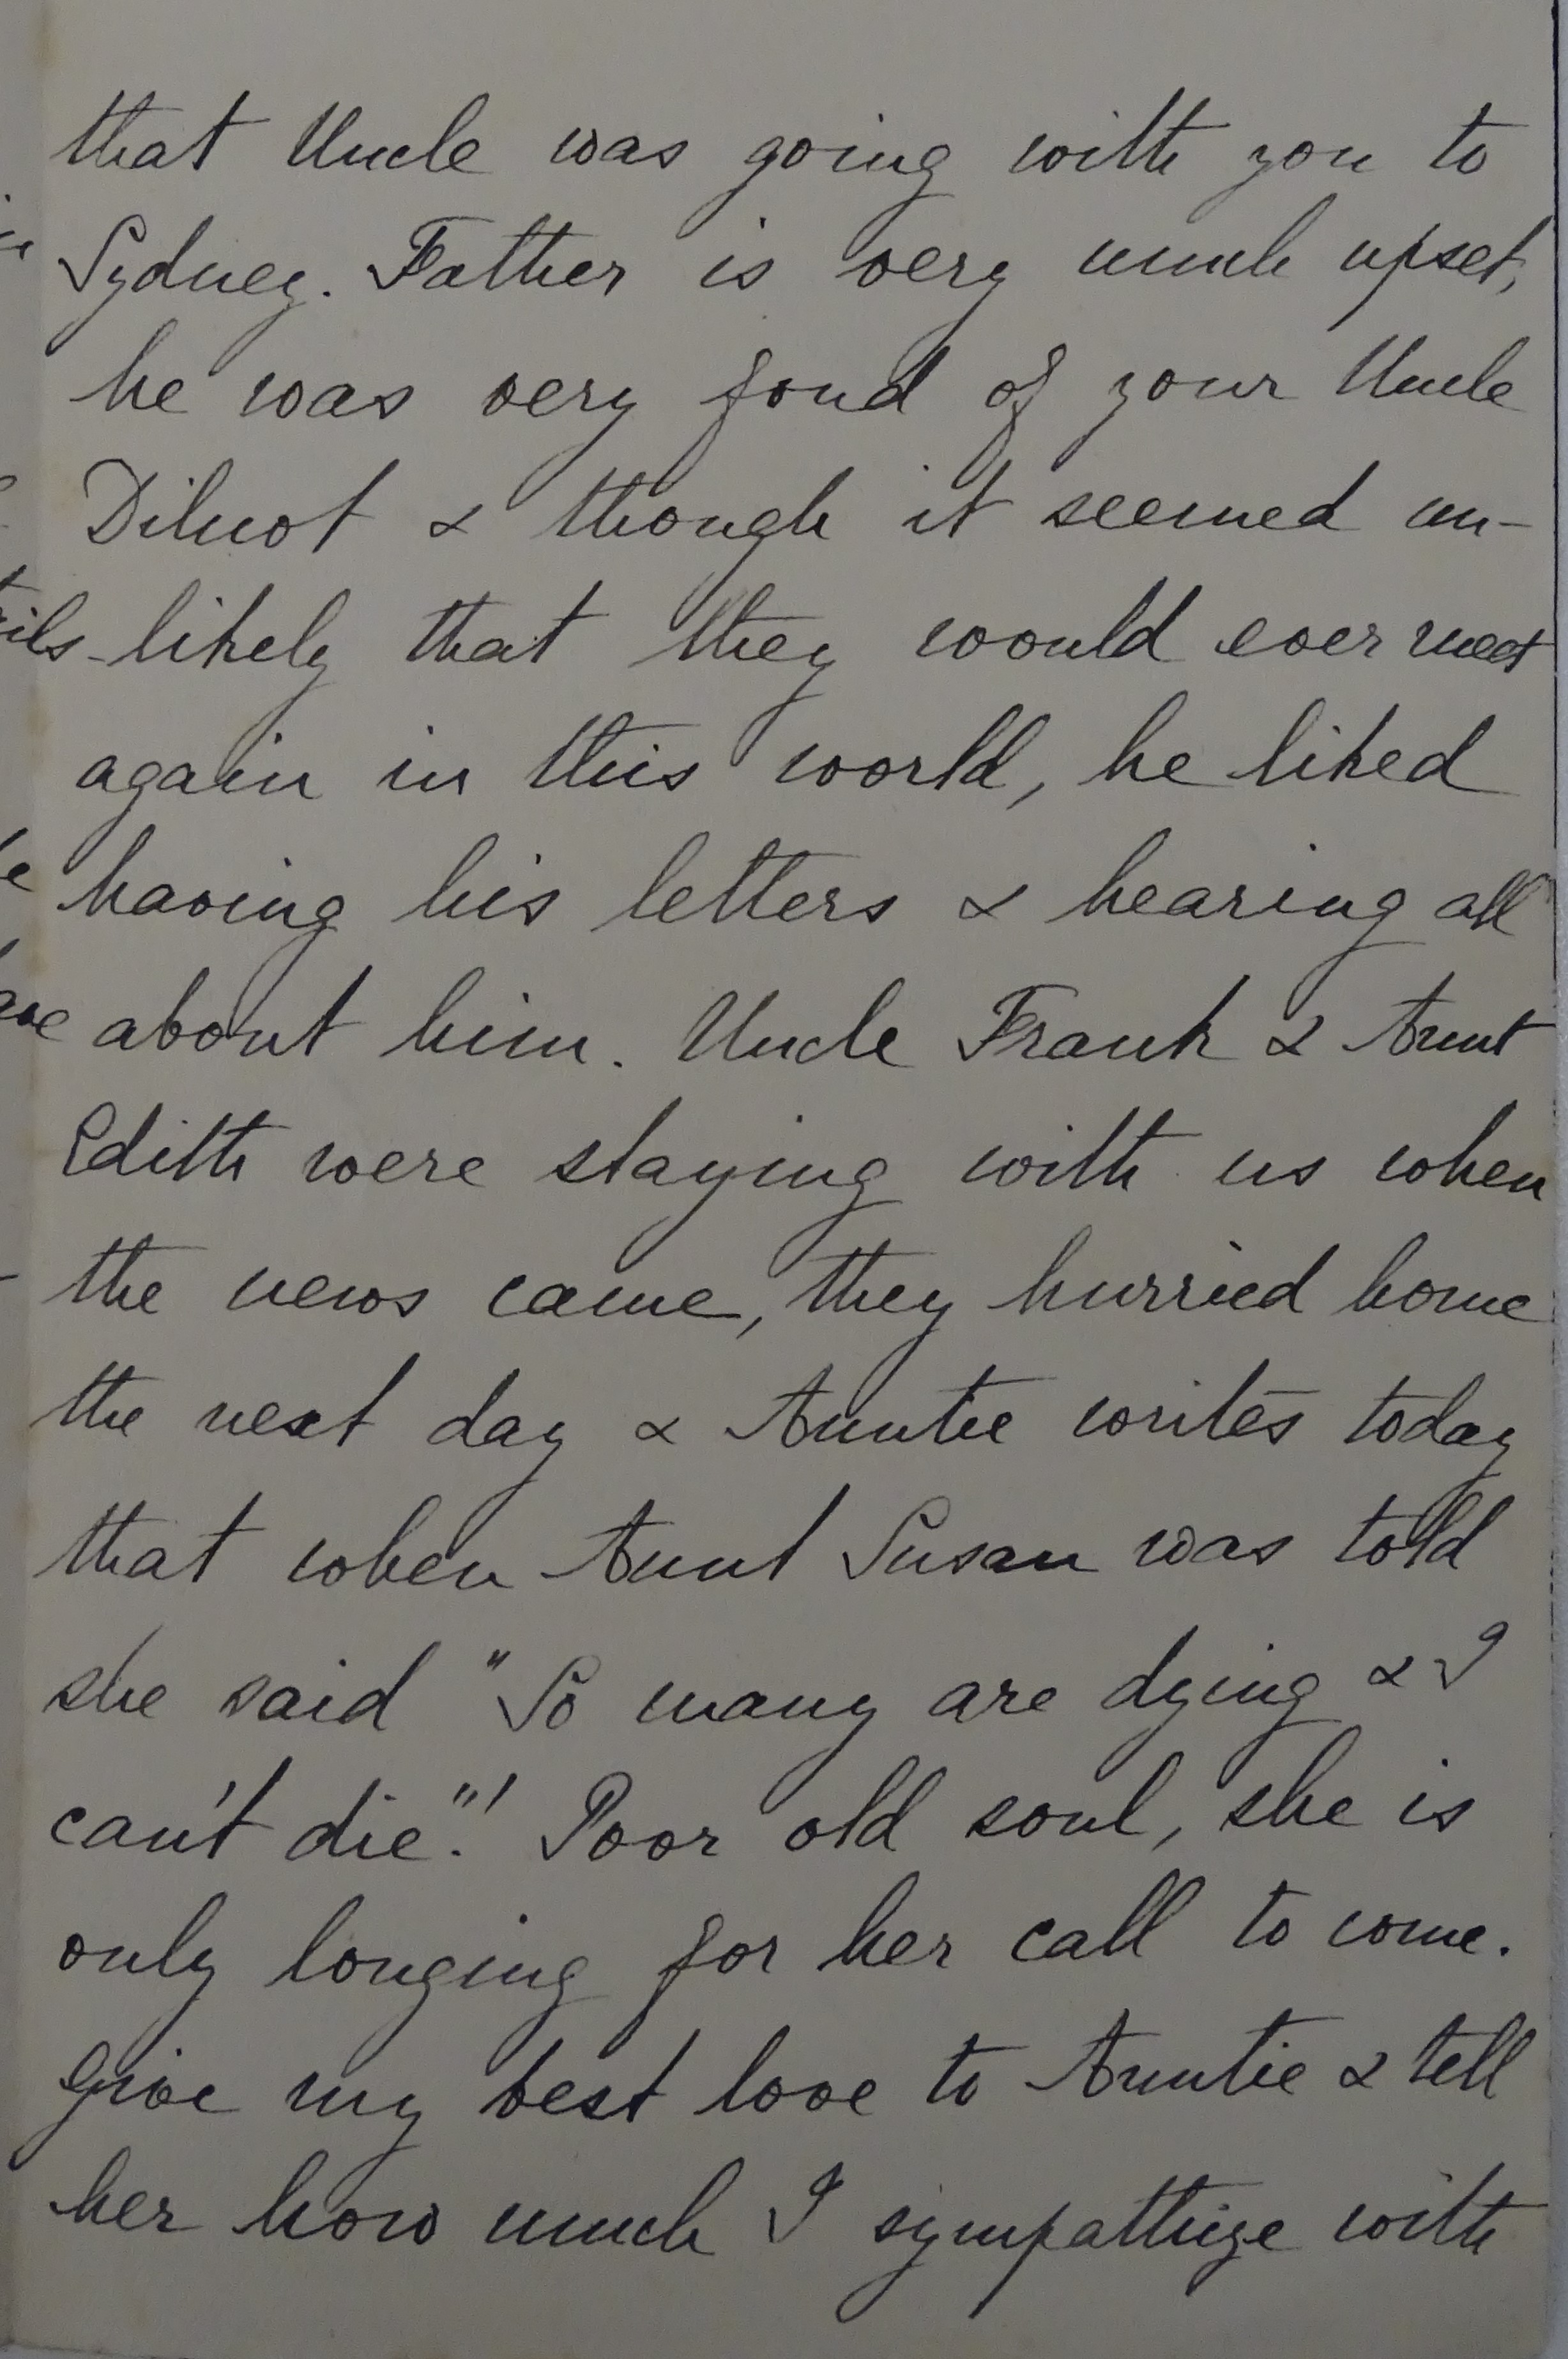 that Uncle was going with you to
Sydney. Father is very much upset,
he was very fond of your Uncle
Dilnot & though it seemed un-
-likely that they would ever meet
again in this world, he liked
having his letters & hearing all
about him. Uncle Frank & Aunt
Edith were staying with us when
the news came, they hurried home
the next day & Auntie writes today
that when Aunt Susan was told
she said "So many are dying & I
can't die"! Poor old soul, she is
only longing for her call to come.
Give my best love to Auntie & tell
her how much I sympathize with